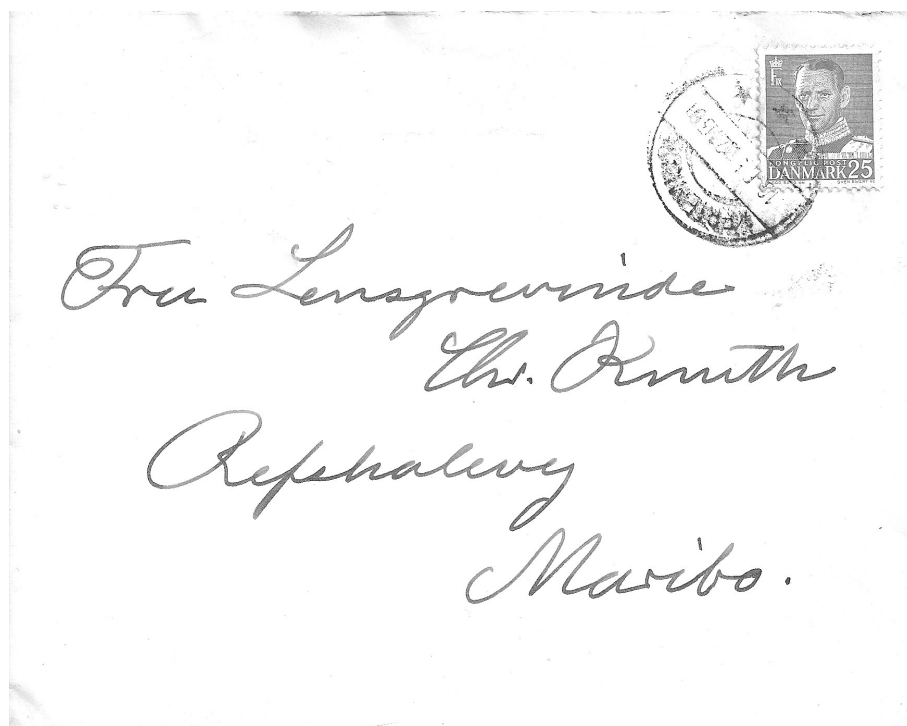 KONGELIG POST
DANMARK 25
Fru Lensgrevinde
Chr. Knuth
Refshalevej
Maribo.